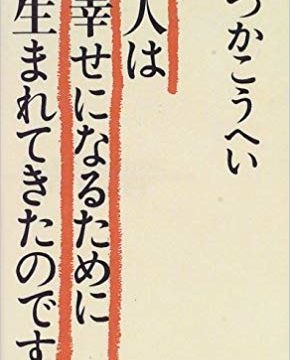 つかこうへい
人は
幸せになるために
生まれてきたのです